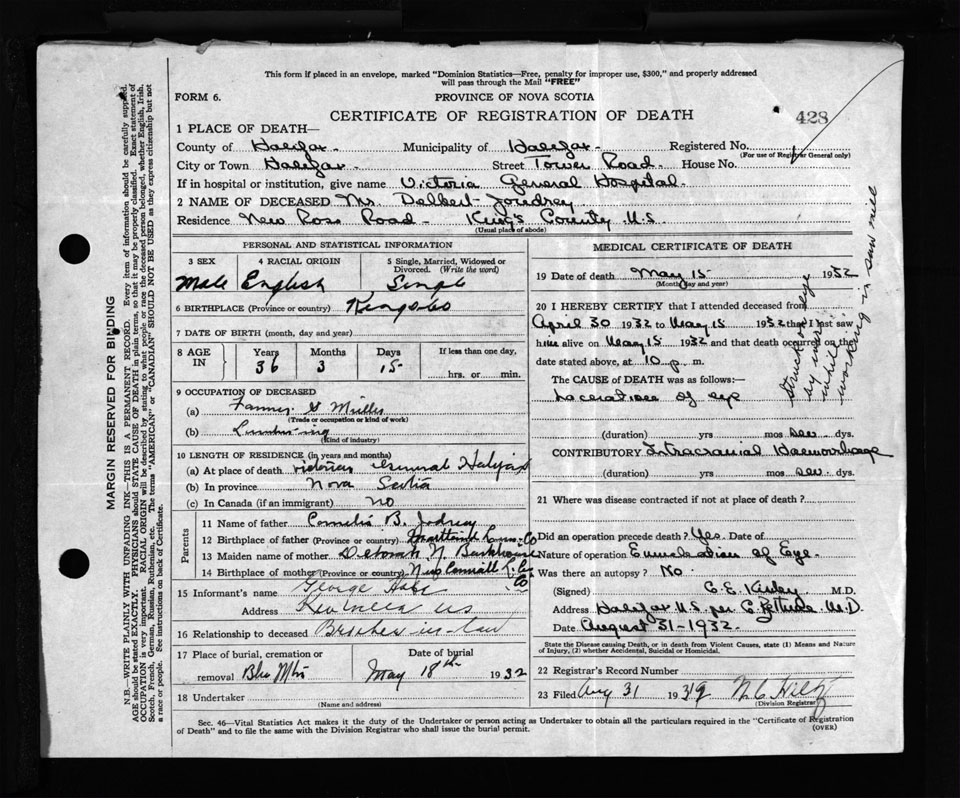 This form if placed in an envelope, marked "Dominion Statistics—Free, penalty for improper use, $300," and properly addressed
will pass through the Mail "FREE"
FORM 6.
PROVINCE OF NOVA SCOTIA
CERTIFICATE OF REGISTRATION OF DEATH
428
1 PLACE OF DEATH—
County of Halifax. Municipality of Halifax. Registered No.
(For use of Registrar General only)
City or Town Halifax Street Tower Road. House No.
If in hospital or institution, give name Victoria General Hospital.
2 NAME OF DECEASED Mr. Delbert Joudrey
Residence New Ross Road - King's County N.S.
(Usual place of abode)
PERSONAL AND STATISTICAL INFORMATION
3 SEX
4 RACIAL ORIGIN
5 Single, Married, Widowed or
Divorced. (Write the word)
Male English Single
6 BIRTHPLACE (Province or country) Kings Co
7 DATE OF BIRTH (month, day and year)
8 AGE IN
Years Months Days If less than one day,
36 3 15
hrs. or min.
9 OCCUPATION OF DECEASED
(a) Farmer &
(Trade or occupation or kind of work)
(b) Lumbering
(Kind of industry)
10 LENGTH OF RESIDENCE (in years and months)
(a) At place of death Victoria General Halifax
(b) In province Nova Scotia
(c) In Canada (if an immigrant) no
Parents
11 Name of father B. Jodrey
12 Birthplace of father (Province or country) Co
13 Maiden name of mother Deborah N. Barkhouse
14 Birthplace of mother (Province or country) New Cornwall
15 Informant's name George
Address
16 Relationship to deceased Brother-in-law
17 Place of burial, cremation or
removal Blue Mtn
Date of burial
May 18th 1932
18 Undertaker
(Name and address)
MEDICAL CERTIFICATE OF DEATH
19 Date of death May 15 1932
(Month, day and year)
20 I HEREBY CERTIFY that I attended deceased from
April 30 1932 to May 15 1932 that I last saw
him alive on May 15 1932 and that death occurred on the
date stated above, at 10 p. m.
The CAUSE of DEATH was as follows:—
Laceration of eye
(duration) yrs mos dys.
CONTRIBUTORY Intracranial Haemorrhage
(duration) yrs mos dys.
struck on eye
by wood
while
working in saw mill
21 Where was disease contracted if not at place of death?
Did an operation precede death? Yes. Date of
Nature of operation Enucleation of Eye.
Was there an autopsy? No.
(Signed) C. E. Kinley
Address Halifax N.S. per M.D.
Date August 31-1932.
State the Disease causing Death, or in death from Violent Causes, state (1) Means and
Nature of Injury, (2) whether Accidental, Suicidal or Homicidal.
22 Registrar's Record Number
23 Filed Aug 31
(Division Registrar)
Sec. 46—Vital Statistics Act makes it the duty of the Undertaker or person acting as Undertaker to obtain all the particulars required in the "Certificate of Registration
of Death" and to file the same with the Division Registrar who shall issue the burial permit.
(OVER)
MARGIN RESERVED FOR BINDING
N.B.—WRITE PLAINLY WITH UNFADING INK—THIS IS A PERMANENT RECORD. Every item of information should be carefully supplied.
AGE should be stated EXACTLY. PHYSICIANS should STATE CAUSE OF DEATH in plain terms, so that it may be properly classified. Exact statement of
OCCUPATION is very important. RACIAL ORIGIN will be described by stating to what people or race the deceased person belonged, whether English, Irish,
Scotch, French, German, Russian, Ruthenian, etc. The terms "AMERICAN" or "CANADIAN" SHOULD NOT BE USED as they express citizenship but not
a race or people. See instructions on back of Certificate.